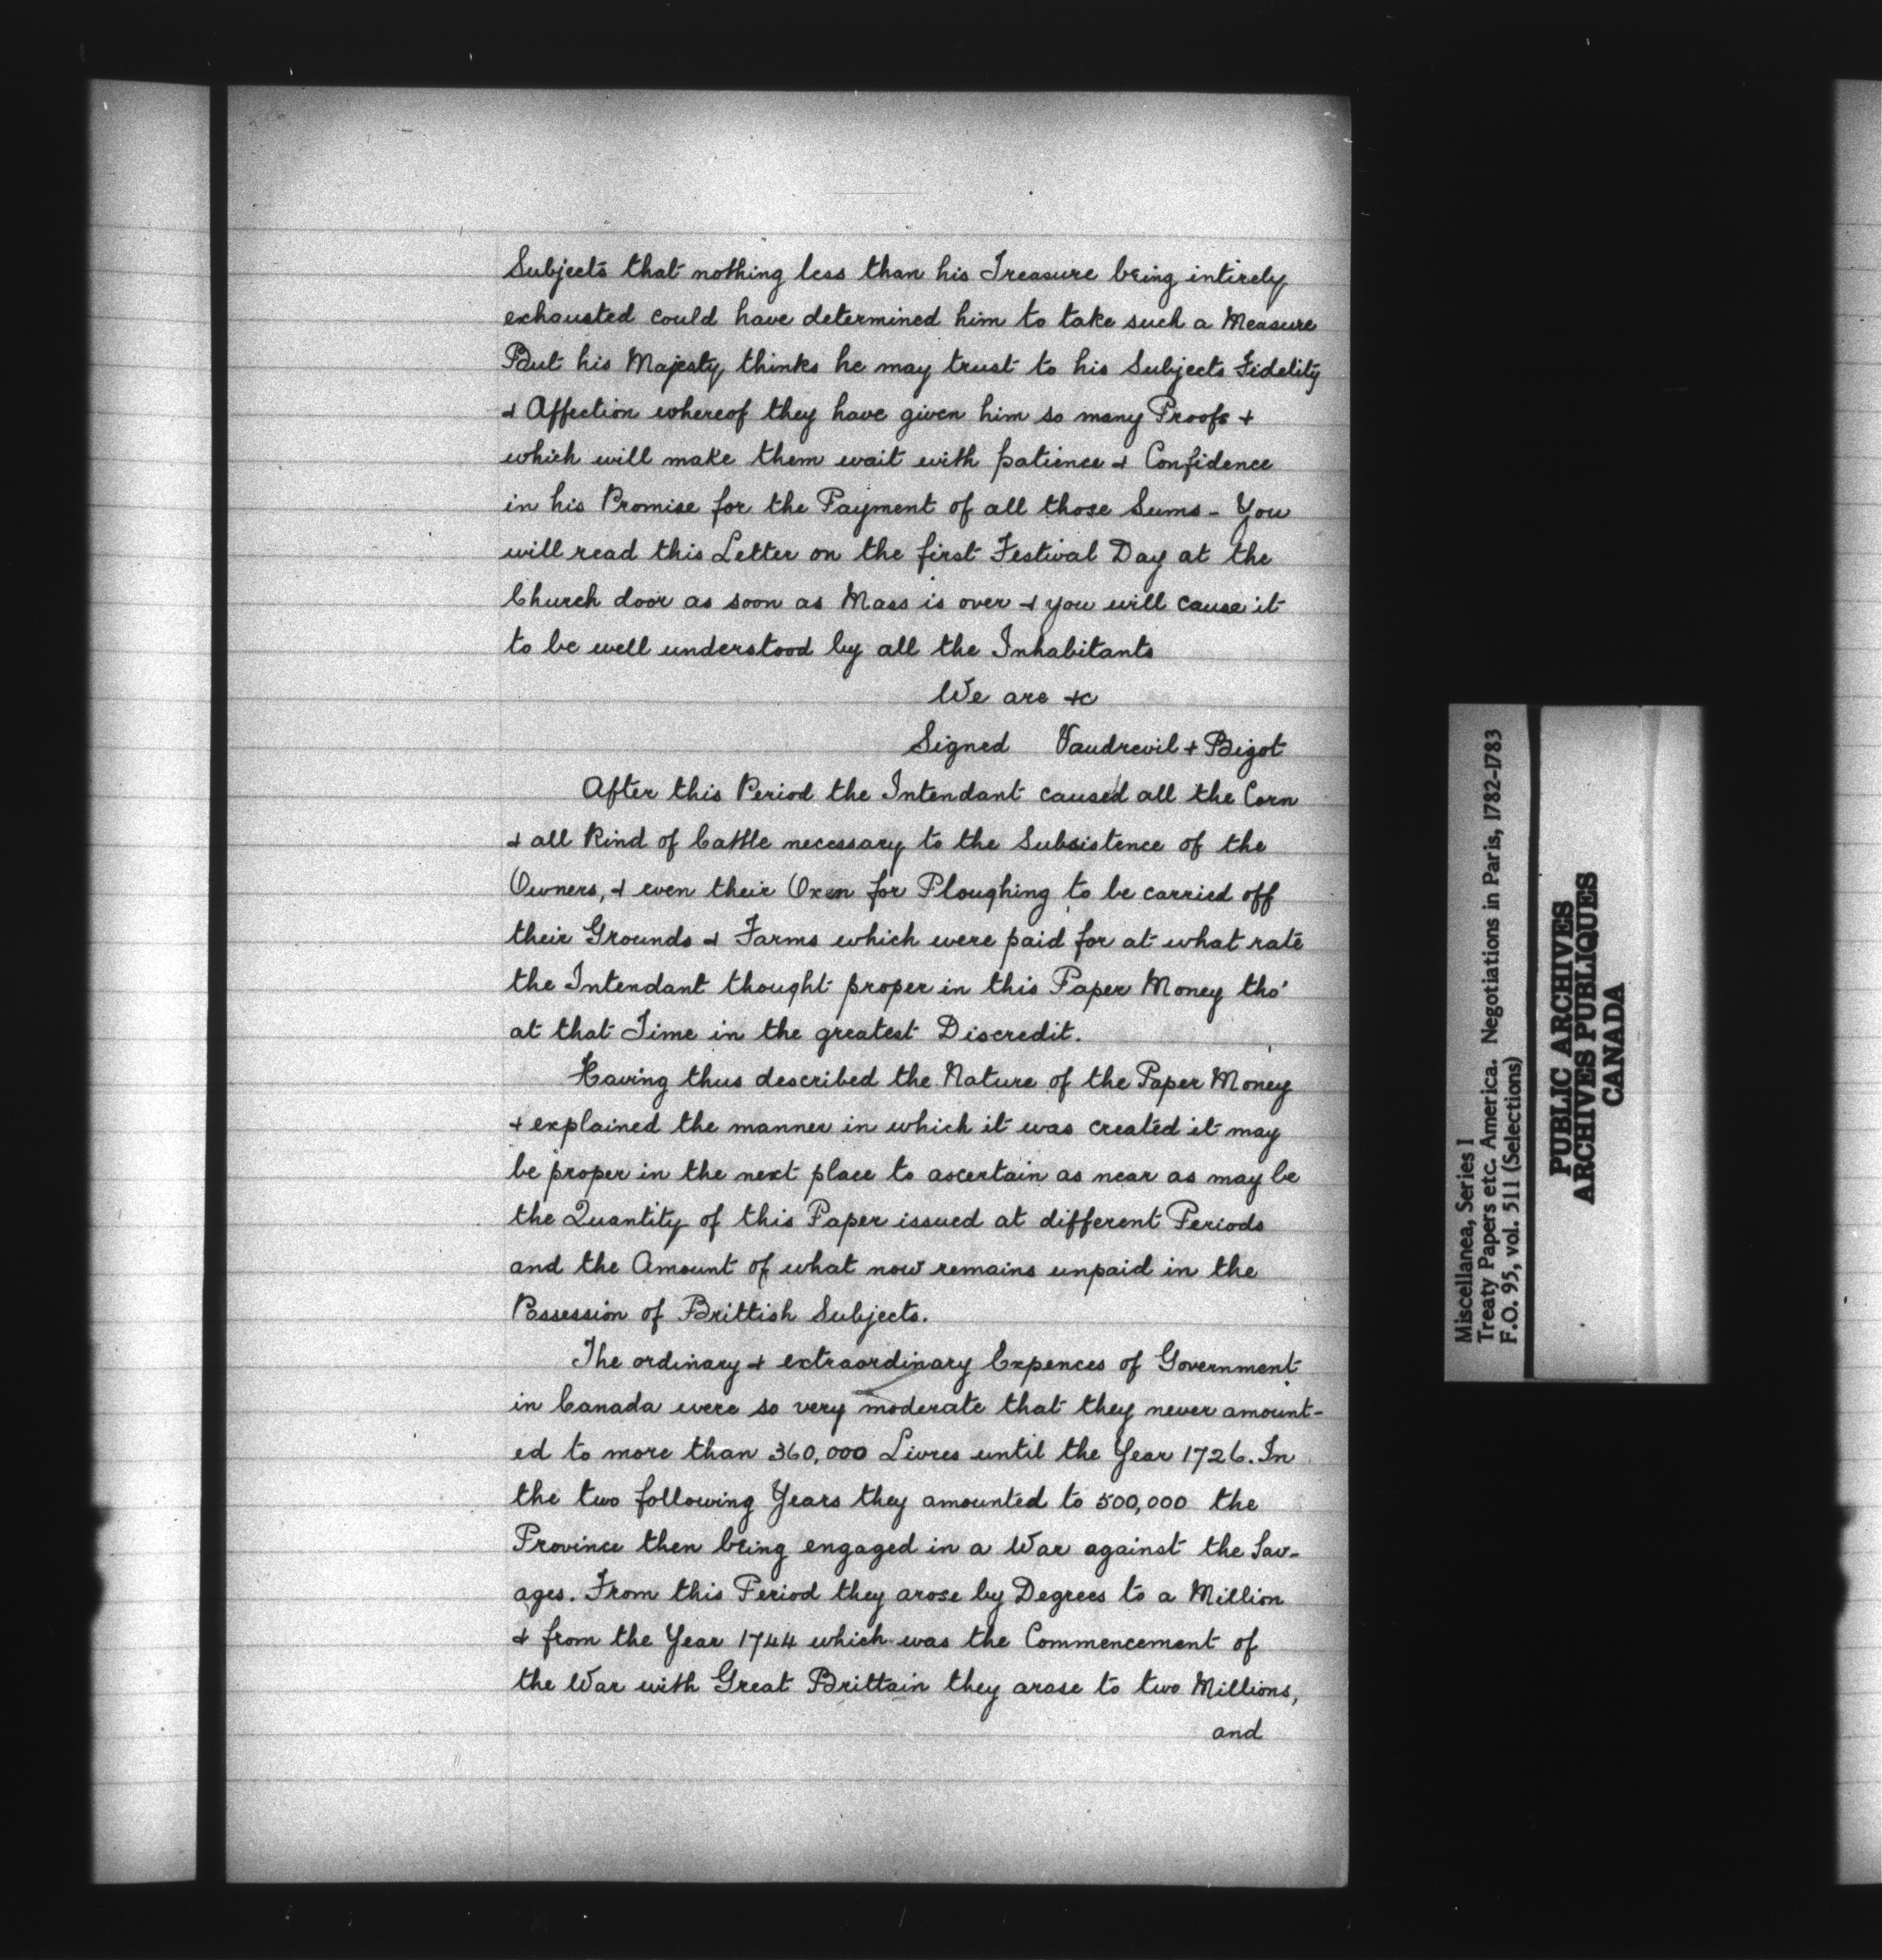 Subjects that nothing less than his Treasure being intirely
exhausted could have determined him to take such a Measure
But his Majesty thinks he may trust to his Subjects Fidelity
& Affection whereof they have given him so many Proofs &
which will make them wait with patience & Confidence
in his Promise for the Payment of all those Sums - You
will read this Letter on the first Festival Day at the
Church door as soon as Mass is over & you will cause it
to be well understood by all the Inhabitants
We are &c
Signed Vaudrevil & Bigot
After this Period the Intendant caused all the Corn
& all Kind of Cattle necessary to the Subsistence of the
Owners, & even their Oxen for Ploughing to be carried off
their Grounds & Farms which were paid for at what rate
the Intendant thought proper in this Paper Money tho'
at that Time in the greatest Discredit.
Having thus described the Nature of the Paper Money
& explained the manner in which it was created it may
be proper in the next place to ascertain as near as may be
the Quantity of this Paper issued at different Periods
and the Amount of what now remains unpaid in the
Possession of Brittish Subjects.
The ordinary & extraordinary Expences of Government
in Canada were so very moderate that they never amount-
ed to more than 360,000 Livres until the Year 1726. In
the two following Years they amounted to 500,000 the
Province then being engaged in a War against the Sav-
ages. From this Period they arose by Degrees to a Million
& from the Year 1744 which was the Commencement of
the War with Great Brittain they arose to two Millions,
and
Miscellanea, Series I
Treaty Papers etc. America. Negotiations in Paris, 1782-1783
F.O. 95, vol. 511 (Selections)
PUBLIC ARCHIVES
ARCHIVES PUBLIQUES
CANADA